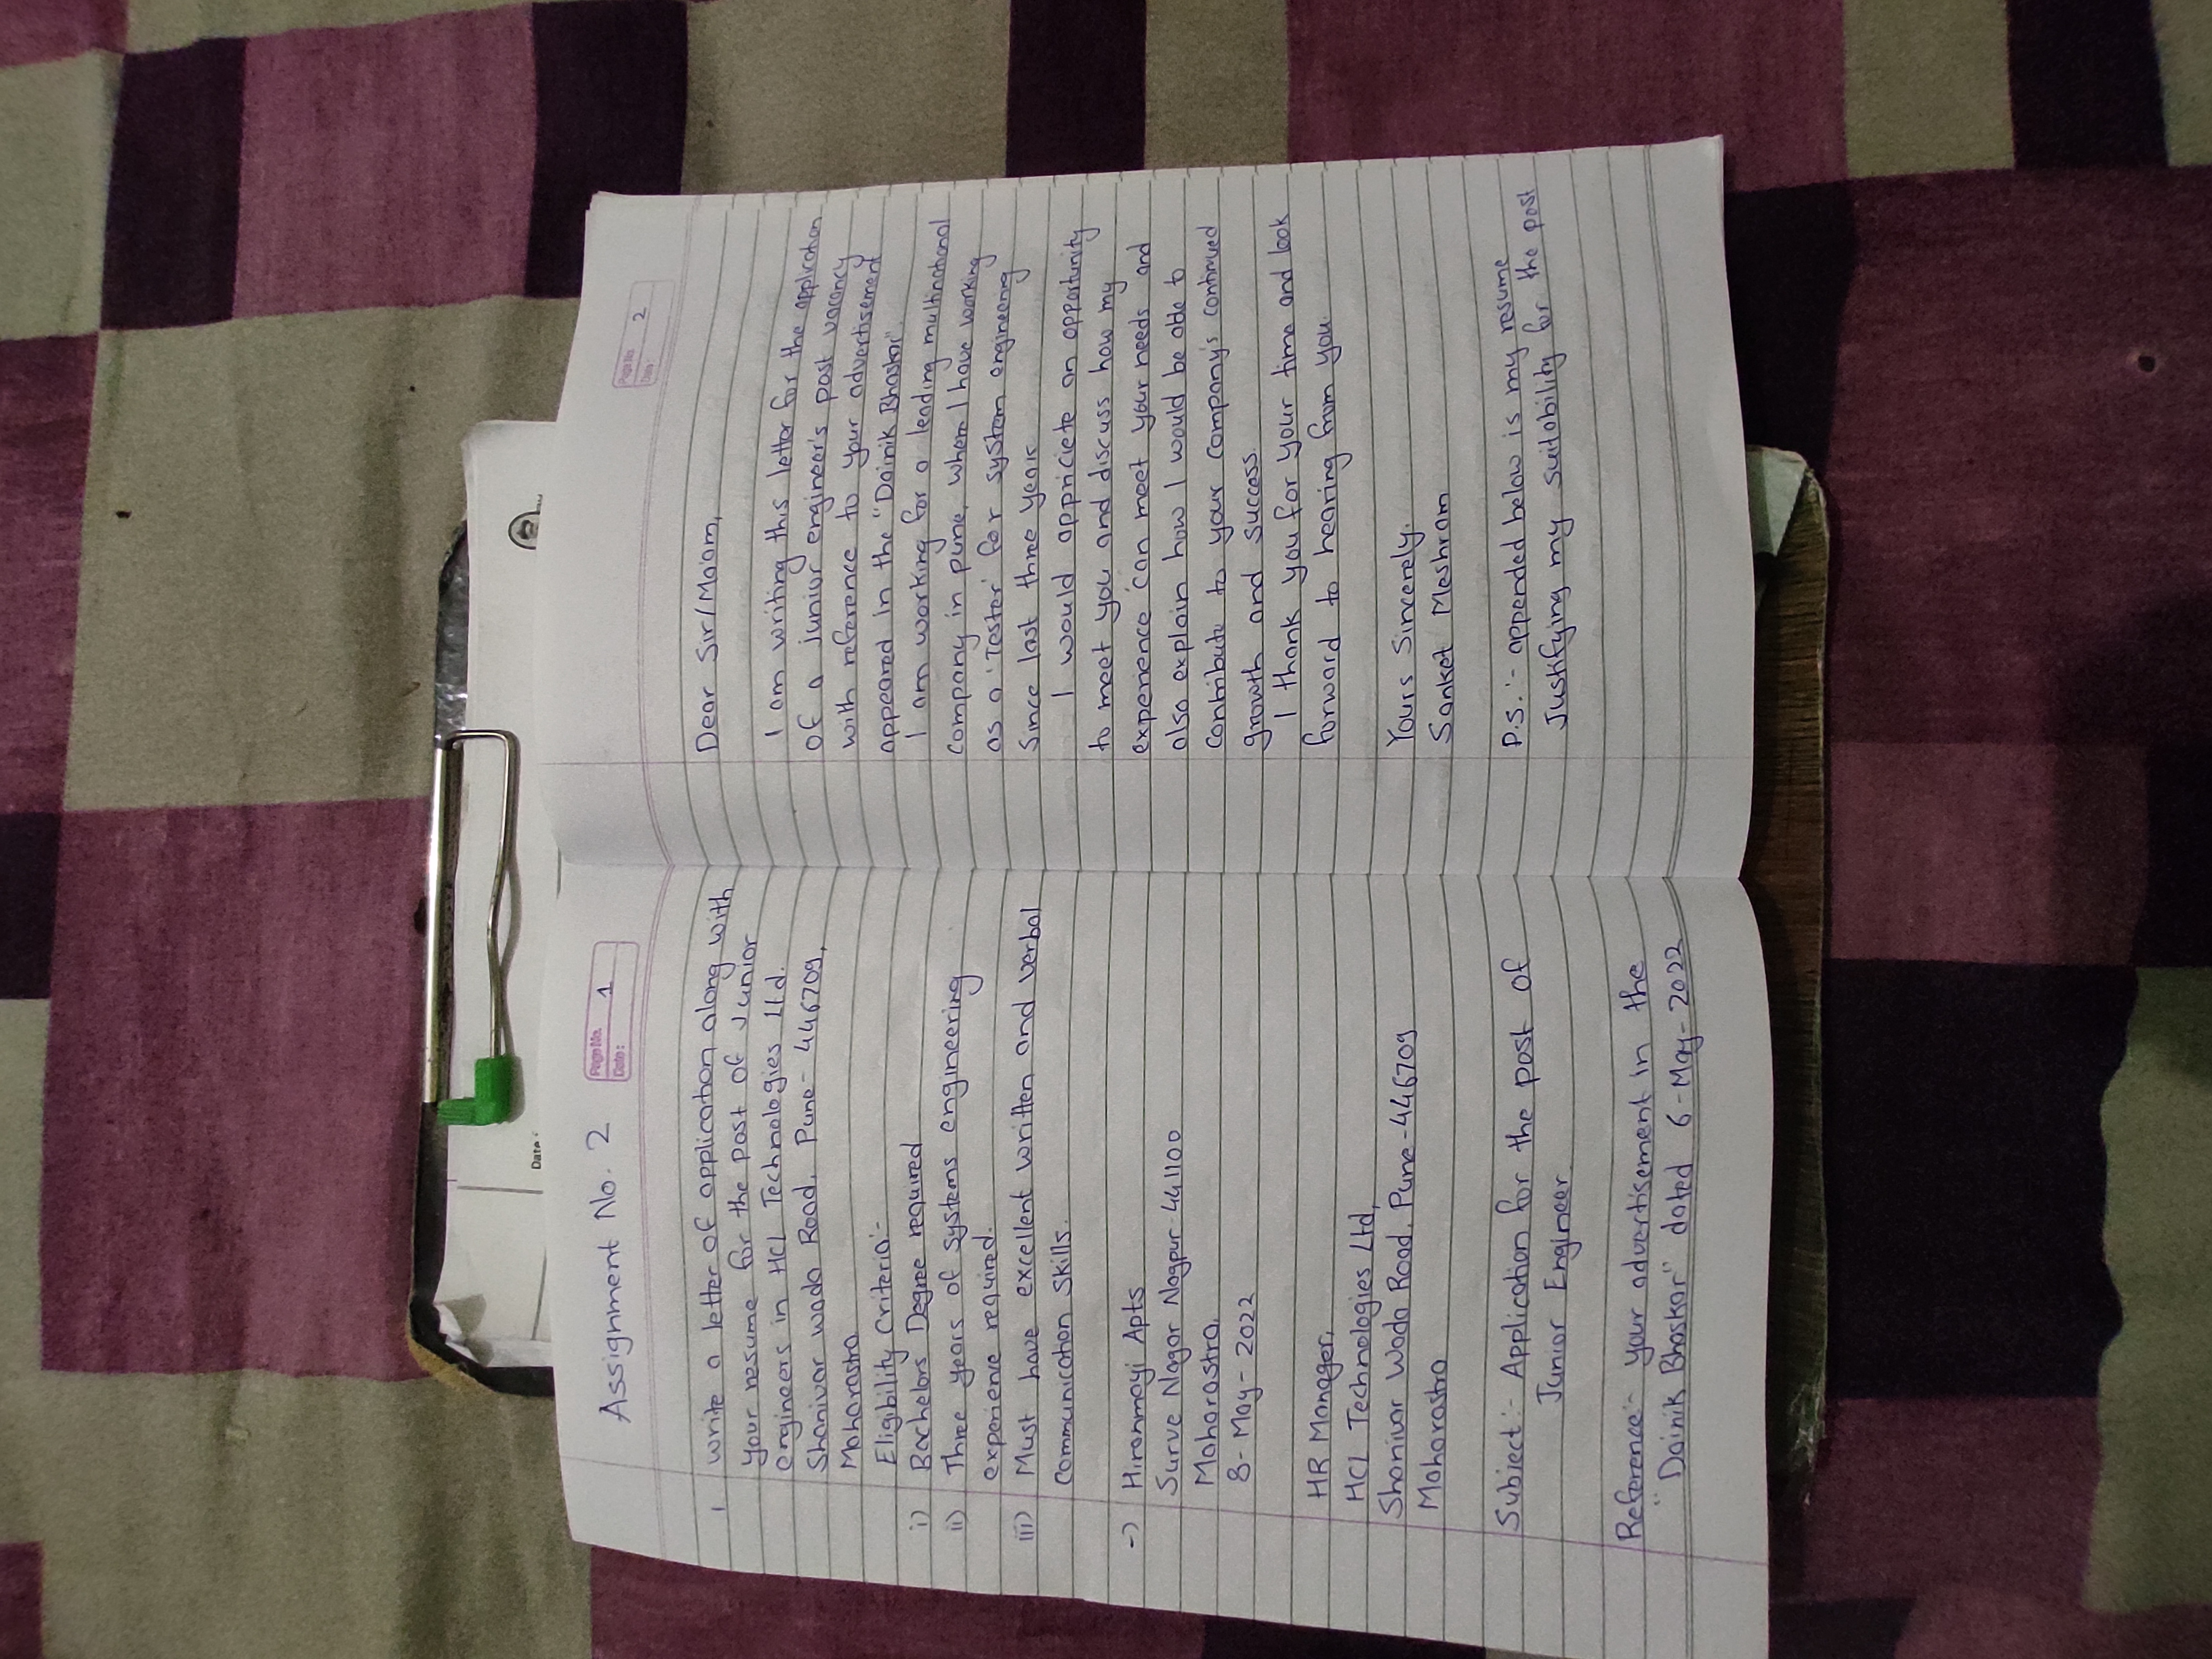 Date :
Assignment No. 2
Page No. 1
Date :
1 Write a letter of application along with
your resume for the post of Junior
engineers in HCL Technologies Ltd.
Shanivar wada Road, Pune - 446709,
Maharastra
Eligibility Criteria:-
i) Bachelors Degree required
ii) Three years of systems engineering
experience required.
iii) Must have excellent written and verbal
communication skills.
-> Hiranmayi Apts
Surve Nagar Nagpur 441100
Maharastra,
8-May-2022
HR Manager,
HCL Technologies Ltd,
Shanivar Wada Road, Pune-446709
Maharastra
Subject:- Application for the post of
Junior Engineer.
Reference:- your advertisement in the
"Dainik Bhaskar" dated 6-May-2022
Page No. 2
Date :
Dear Sir/Ma'am,
I am writing this letter for the application
of a junior engineer's post vacancy
with reference to your advertisement
appeared in the "Dainik Bhaskar".
I am working for a leading multinational
company in pune, when I have working
as a 'Tester' for system engineering
since last three years
I would appriciete an opportunity
to meet you and discuss how my
experience can meet your needs and
also explain how I would be able to
contribute to your company's continued
growth and success.
I thank you for your time and look
forward to hearing from you.
Yours Sincerely.
Sanket Meshram
P.S. :- appended below is my resume
Justifying my suitability for the post